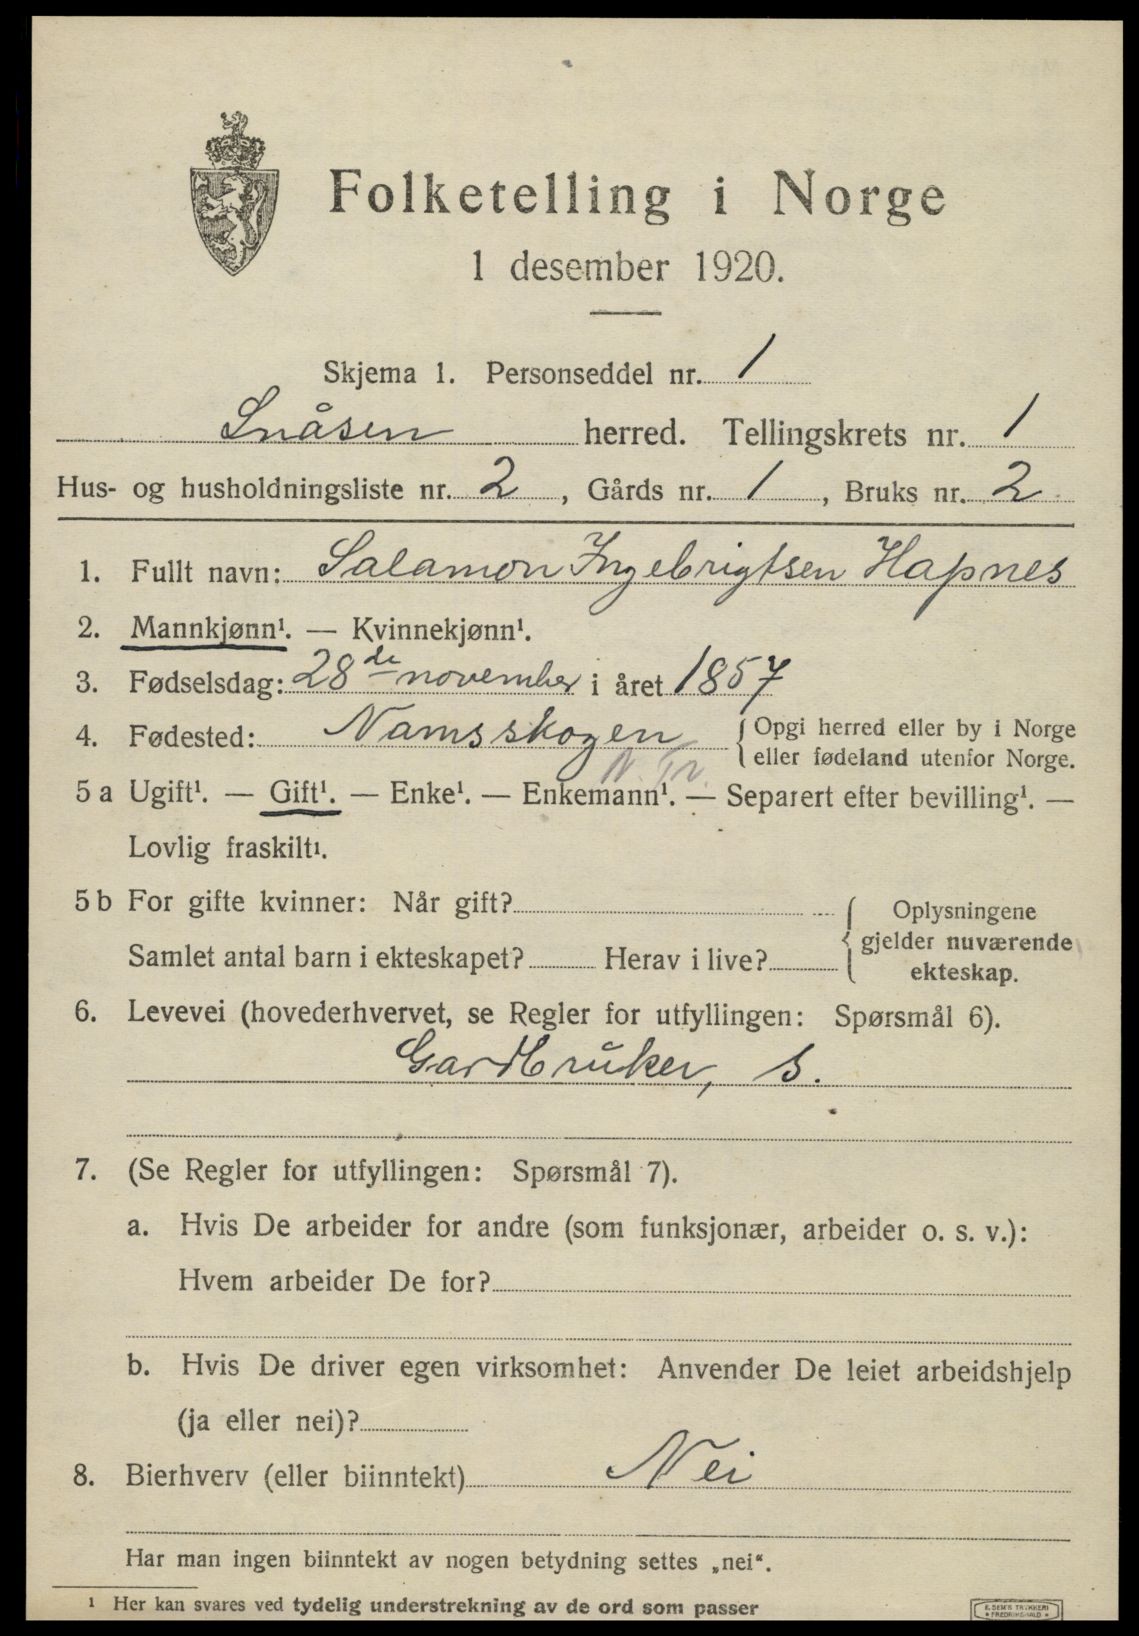 Folketelling i Norge
1 desember 1920.
Skjema 1. Personseddel nr. 1
Snåsen herred. Tellingskrets nr. 1
Hus- og husholdningsliste nr. 2, Gårds nr. 1, Bruks nr. 2
1. Fullt navn: Salamon Ingebrigtsen Hapnes
2. Mannkjønn¹. — Kvinnekjønn¹.
3. Fødselsdag: 28de november i året 1857
4. Fødested: Namsskogen { Opgi herred eller by i Norge
eller fødeland utenfor Norge.
N. Tr.
5 a Ugift¹. — Gift¹. — Enke¹. — Enkemann¹. — Separert efter bevilling¹. —
Lovlig fraskilt¹.
5 b For gifte kvinner: Når gift? { Oplysningene
gjelder nuværende
Samlet antal barn i ekteskapet? Herav i live?
ekteskap.
6. Levevei (hovederhvervet, se Regler for utfyllingen: Spørsmål 6).
Gardbruker, s.
7. (Se Regler for utfyllingen: Spørsmål 7).
a. Hvis De arbeider for andre (som funksjonær, arbeider o. s. v.):
Hvem arbeider De for?
b. Hvis De driver egen virksomhet: Anvender De leiet arbeidshjelp
(ja eller nei)?
8. Bierhverv (eller biinntekt) Nei
Har man ingen biinntekt av nogen betydning settes „nei“.
¹ Her kan svares ved tydelig understrekning av de ord som passer
E. SEM'S TRYKKERI
FREDRIKSHALD